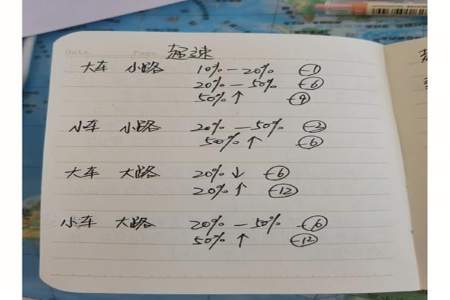 Date
Page
超速
大车 小路 10% — 20% -1
20% — 50% -6
50% ↑ -9
小车 小路 20% — 50% -3
50% ↑ -6
大车 大路 20% ↓ -6
20% ↑ -12
小车 大路 20% — 50% -6
50% ↑ -12